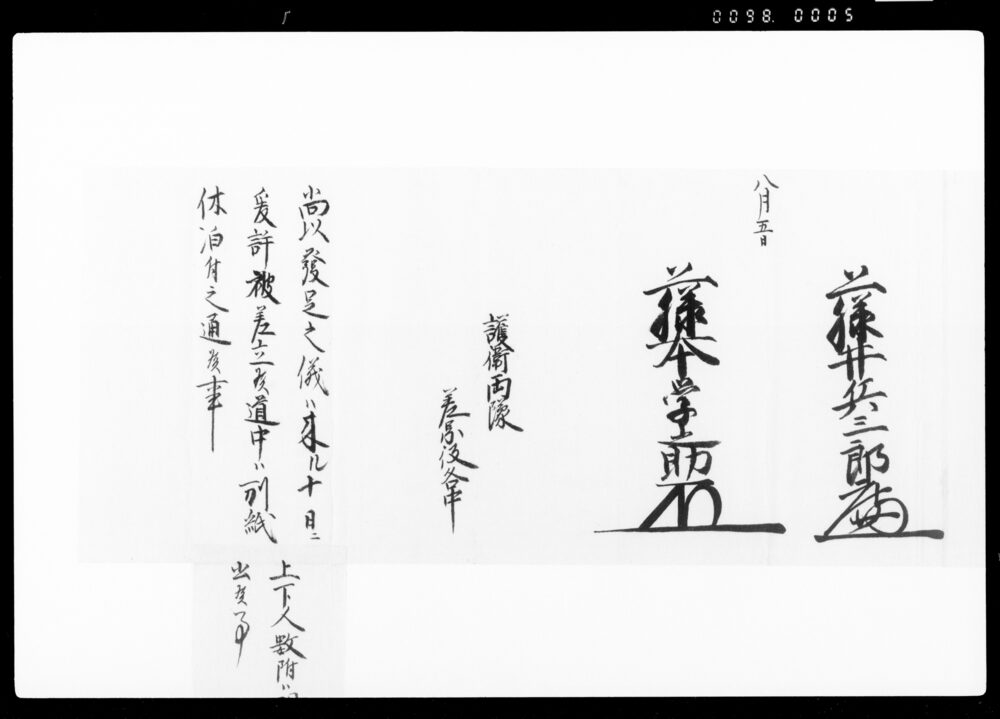 0098. 0005
八月五日
藤井兵三郎
藤本学上助
護衛両隊
差添役各中
尚以發足之儀ハ来ル十日ニ
爰許被差立候道中ハ別紙
休泊付之通候事
上下人数附ハ
出候事